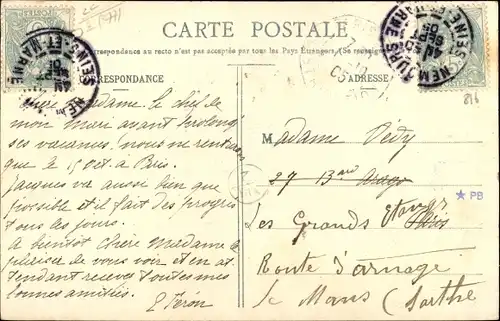 CARTE POSTALE
Correspondance au recto n'est pas acceptée par tous les Pays Étrangers. (Se renseigner
CORRESPONDANCE
ADRESSE
Chère Madame. le chef de
mon mari ayant prolongé
ses vacances, nous ne rentrons
que le 15 oct. à Paris.
Jacques va aussi bien que
possible et il fait des progrès
tous les jours.
A bientôt chère Madame le
plaisir de vous voir et en at
tendant recevez toutes mes
bonnes amitiés.
Madame Védy
27 Bard Arago
Paris
Les Grands Etangs
Route d'arnage
Le Mans (Sarthe)
NEMOURS
SEINE-ET-MARNE
SEINE-ET-MARNE
PB